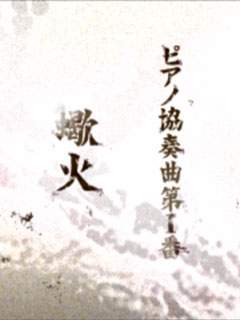 ピアノ協奏曲第1番
蠍火